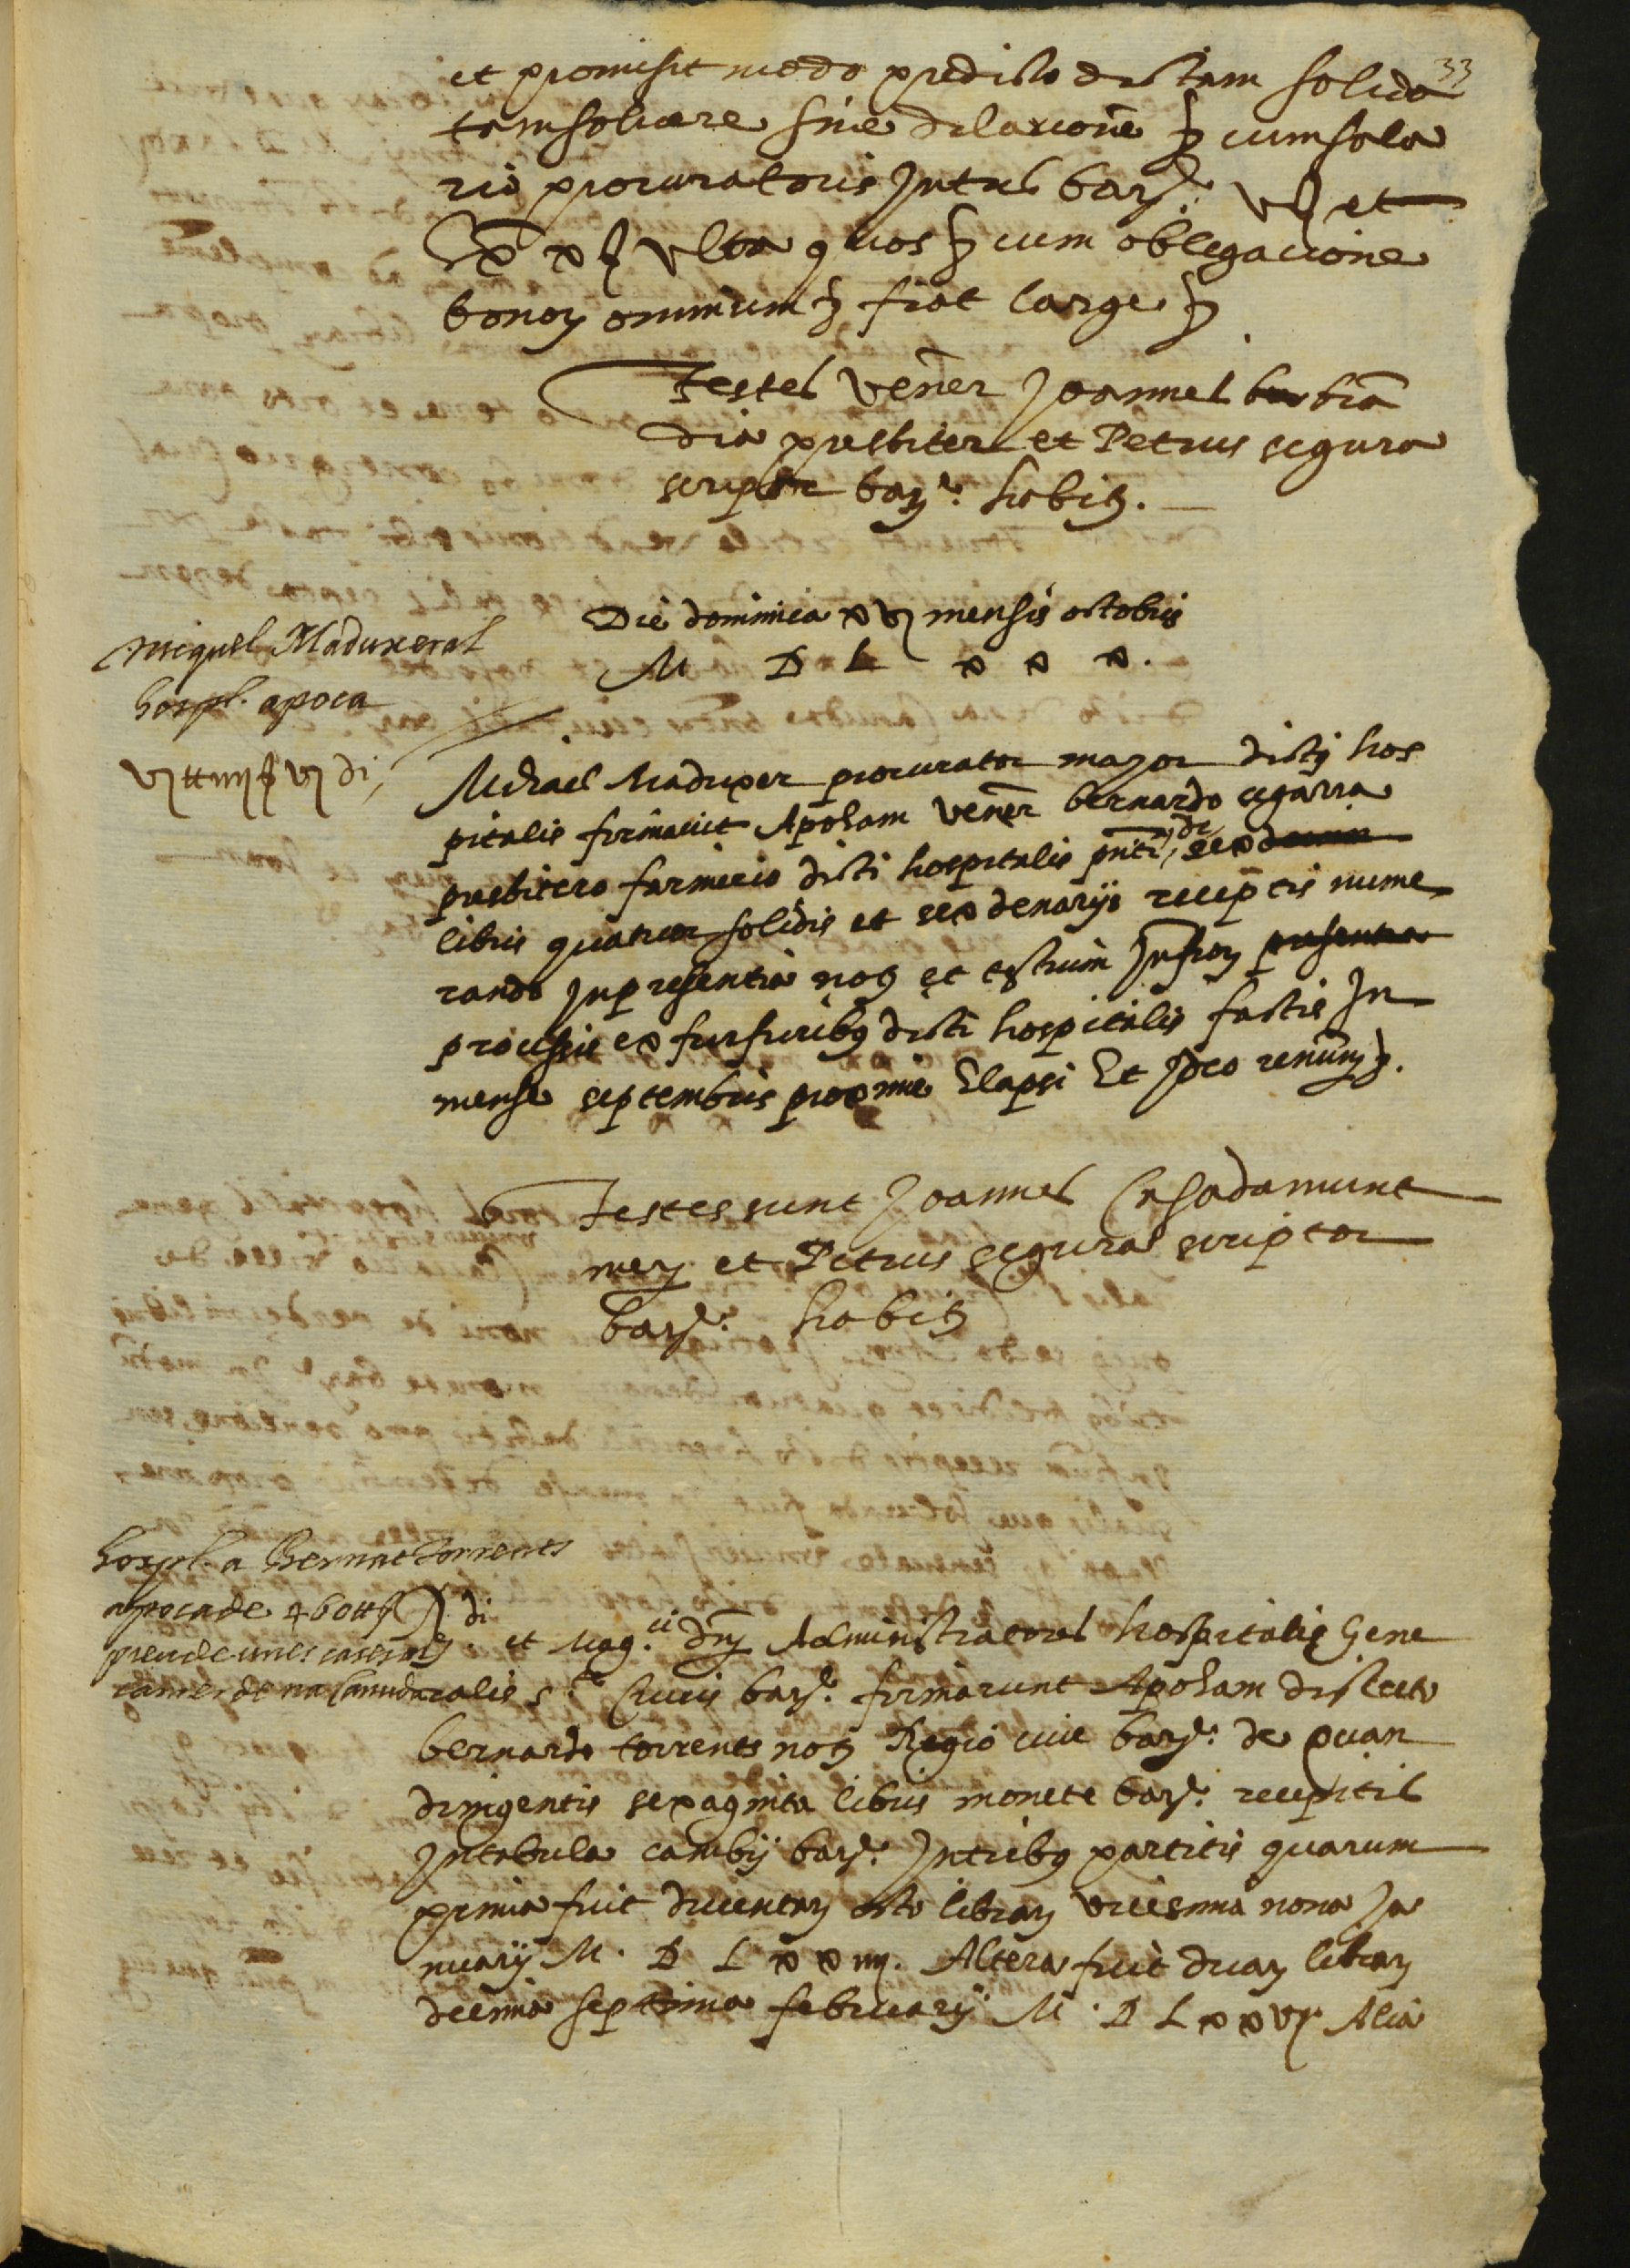 33
et promisit modo predicto dictam solido
tam solvere sine dilacione etc cum sala
rio procuratoris intus barne. v s et
extra x s ultra quos etc cum obligacione
bonorum omnium etc fiat large etc
Testes vener Joannes bra
dia presbiter et Petrus segura
scriptor barne. habits.
Die dominica xvj mensis octobris
M D L x x x.
Miquel Maduxer al
hospl. apoca
vj ll iiij s vj di
Michael Maduxer procurator major dicti hos
pitalis firmavit Apocham vener bernardo cegarra
presbitero farinerio dicti hospitalis pnti, de sex
libris quatuor solidis et sex denariis receptis nume
rando in presentia nots et testium infror presentia
processis ex furfuribus dicti hospitalis factis In
mense septembris proxime Elapsi Et Ideo renun etc.
Testes sunt Joannes Casadamunt
mer et Petrus segura scriptor
barne. habits
hospl. a Bernat Torrents
apoca de 460 ll s di
preu de unes cases als
carrer de na Canuda
et Mag.ci dnj Administratores hospitalis Gene
ralis s.te Crucis barne. firmarunt Apocham dilecto
bernardo torrents nots Regio cive barne. de quan
dringentis sexaginta libris monete barne. receptis
In tabula cambij barne. In tribus partitis quarum
prima fuit ducentar octo librar vicesima nona Ja
nuarij M. D L x x iiij. Altera fuit duar librar
decima septima februarij M. D L x x vj. Alia